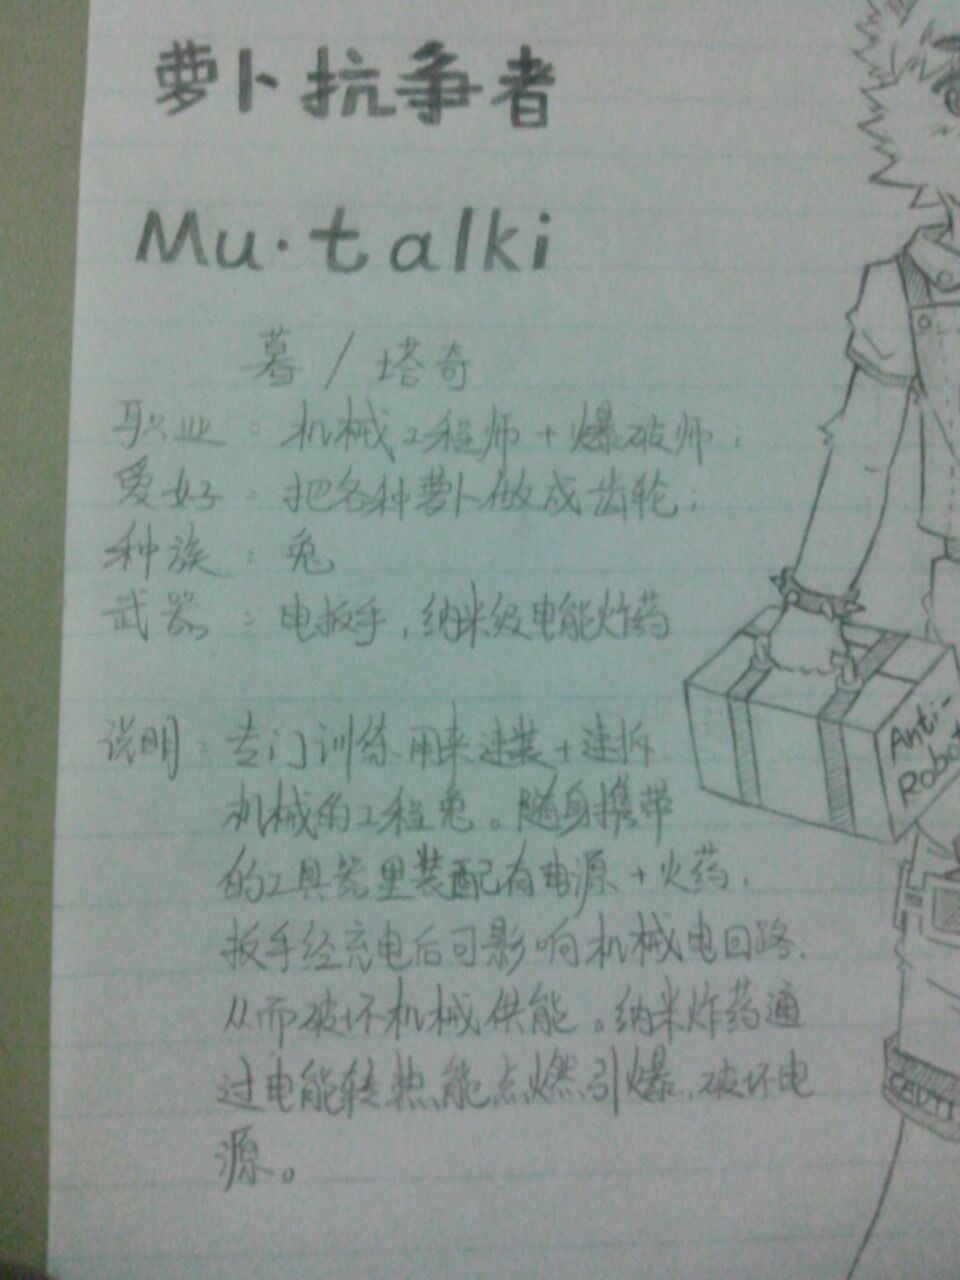 萝卜抗争者
Mu·talki
暮/塔奇
职业:机械工程师+爆破师;
爱好:把各种萝卜做成齿轮;
种族:兔
武器:电扳手,纳米级电能炸药
说明:专门训练用来速装+速拆
机械的工程兔。随身携带
的工具瓷里装配有电源+火药,
扳手经充电后可影响机械电回路,
从而破坏机械供能。纳米炸药通
过电能转热能点燃引爆,破坏电
源。
Anti-
Robot